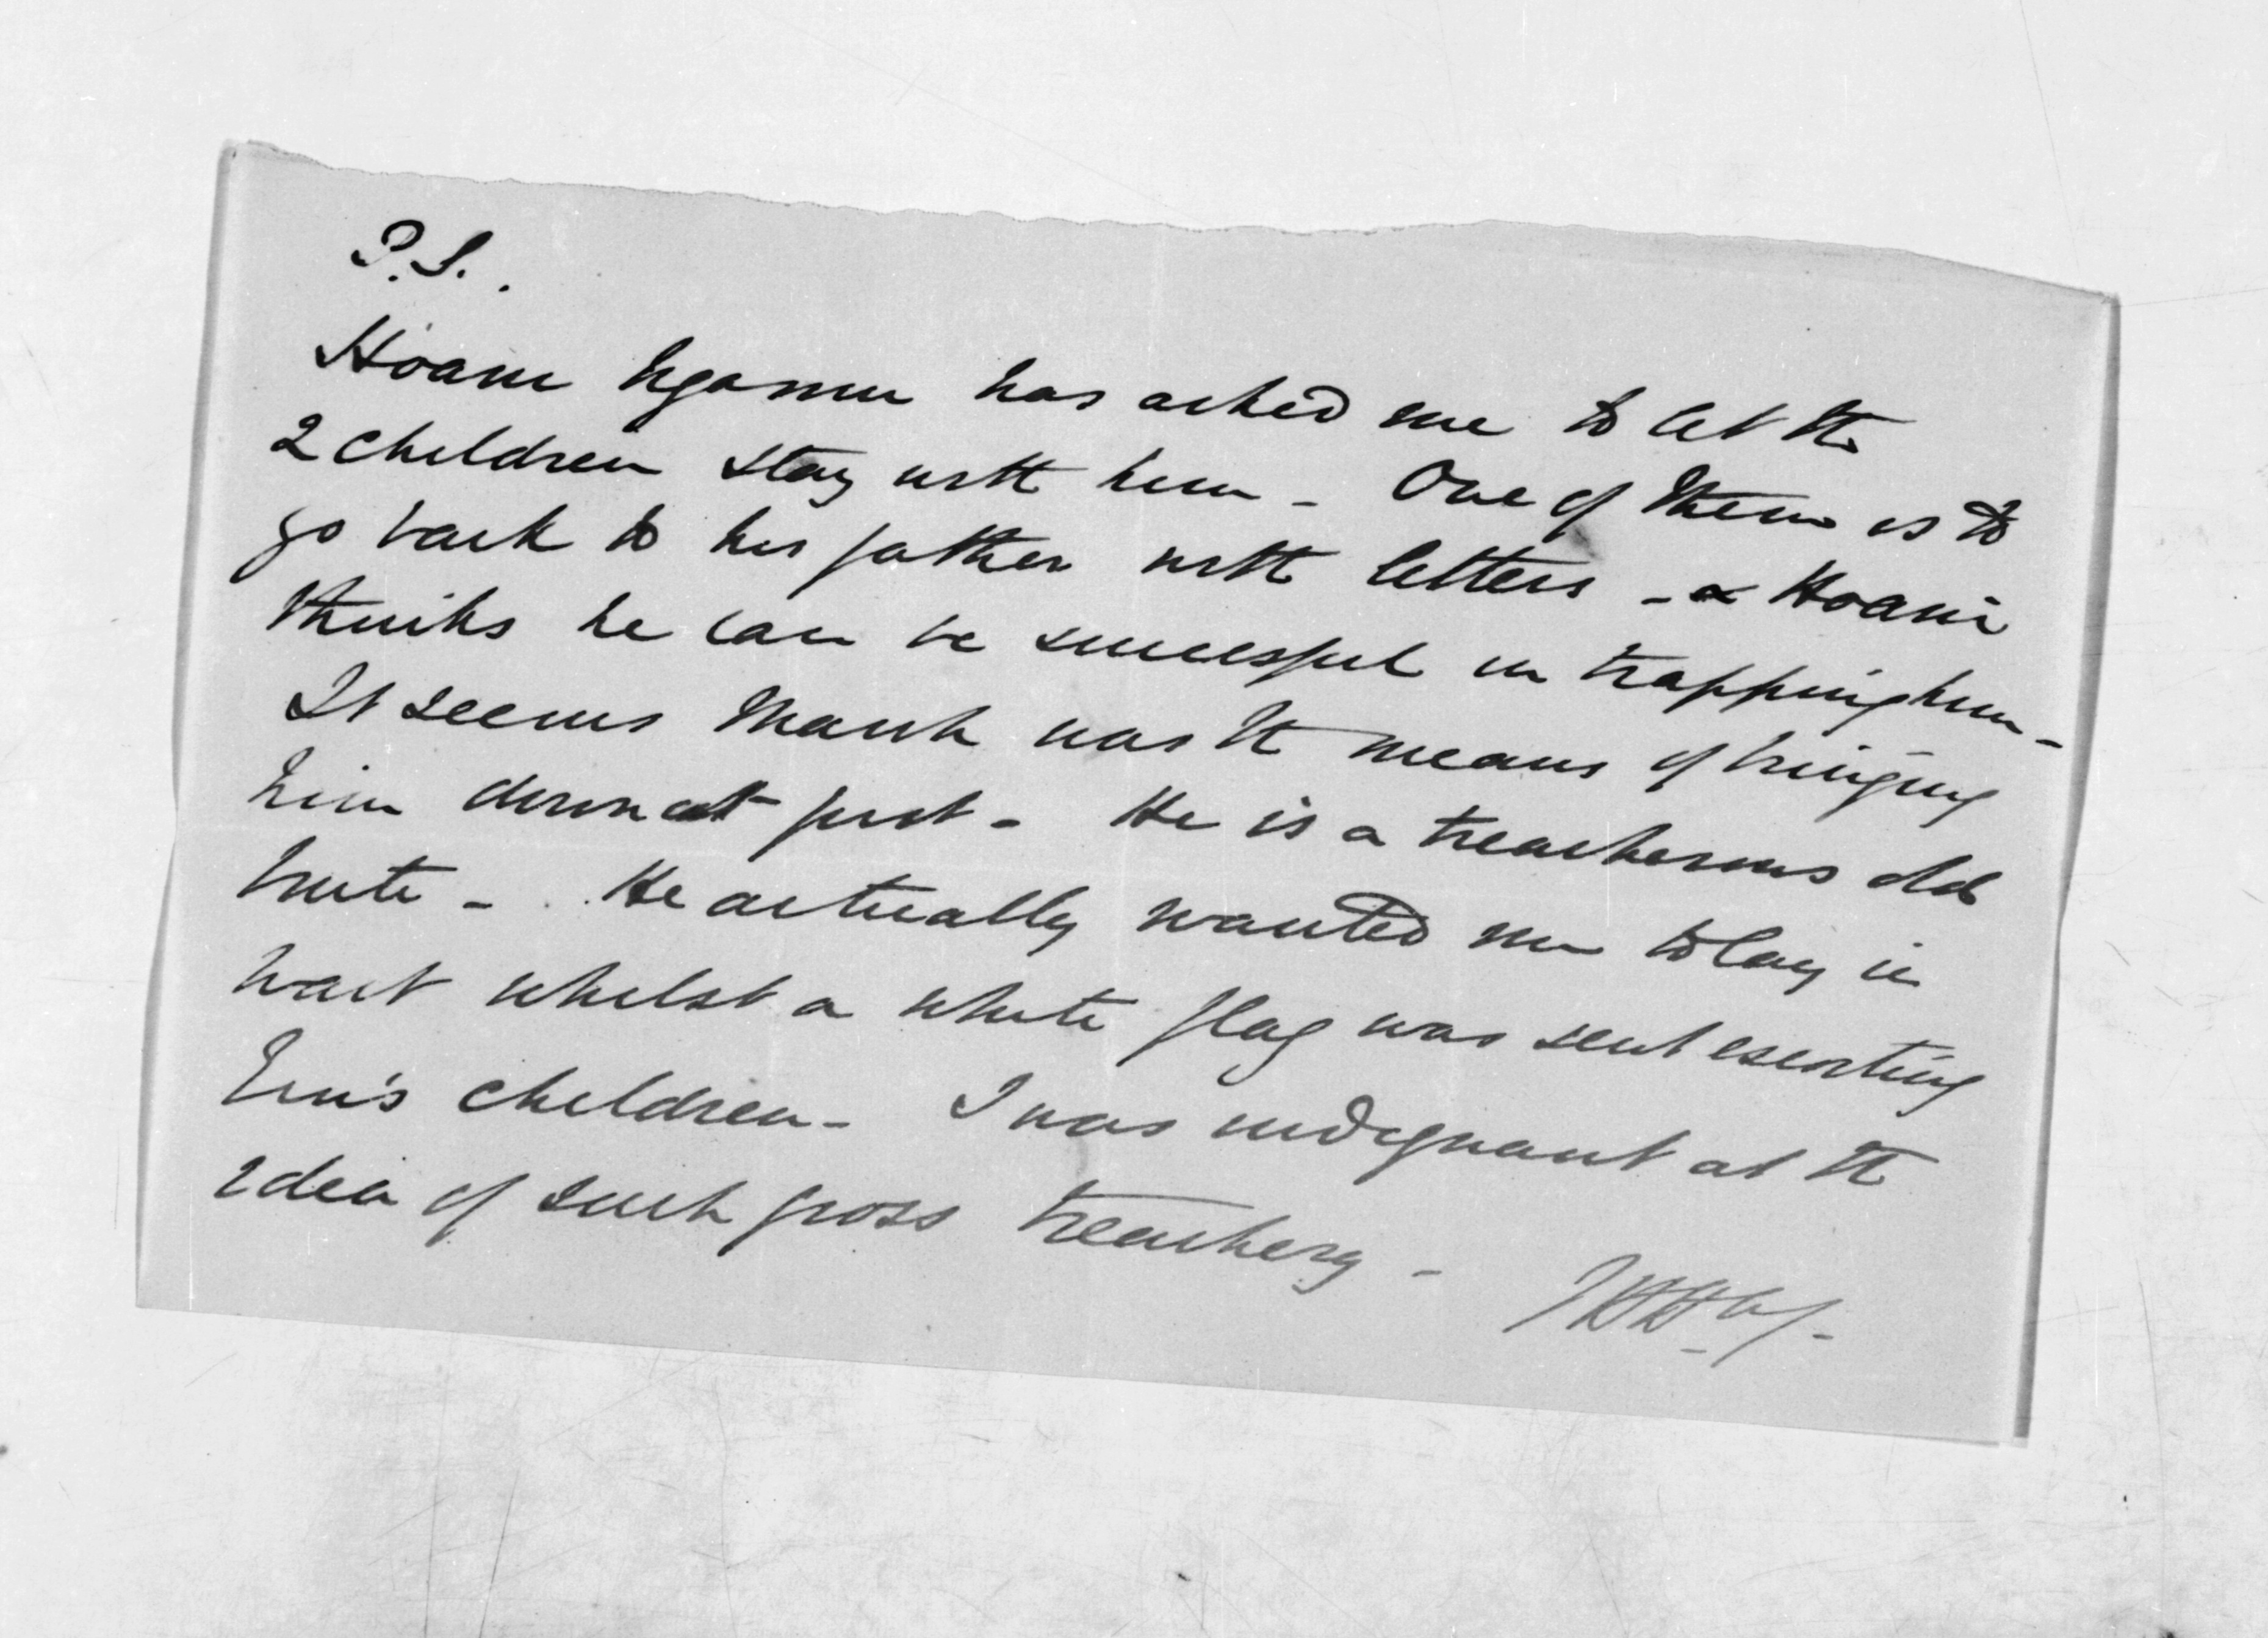 P.S.
Hoani Ngamu has asked me to let the
2 children stay with him - One of them is to
go back to his father with letters - & Hoani
thinks he can be successful in trapping him -
It seems Manh was the means of bringing
him down at first - He is a treacherous old
brute - He actually wanted me to lay in
wait whilst a white flag was sent escorting
Eru's children - I was indignant at the
idea of such gross treachery -